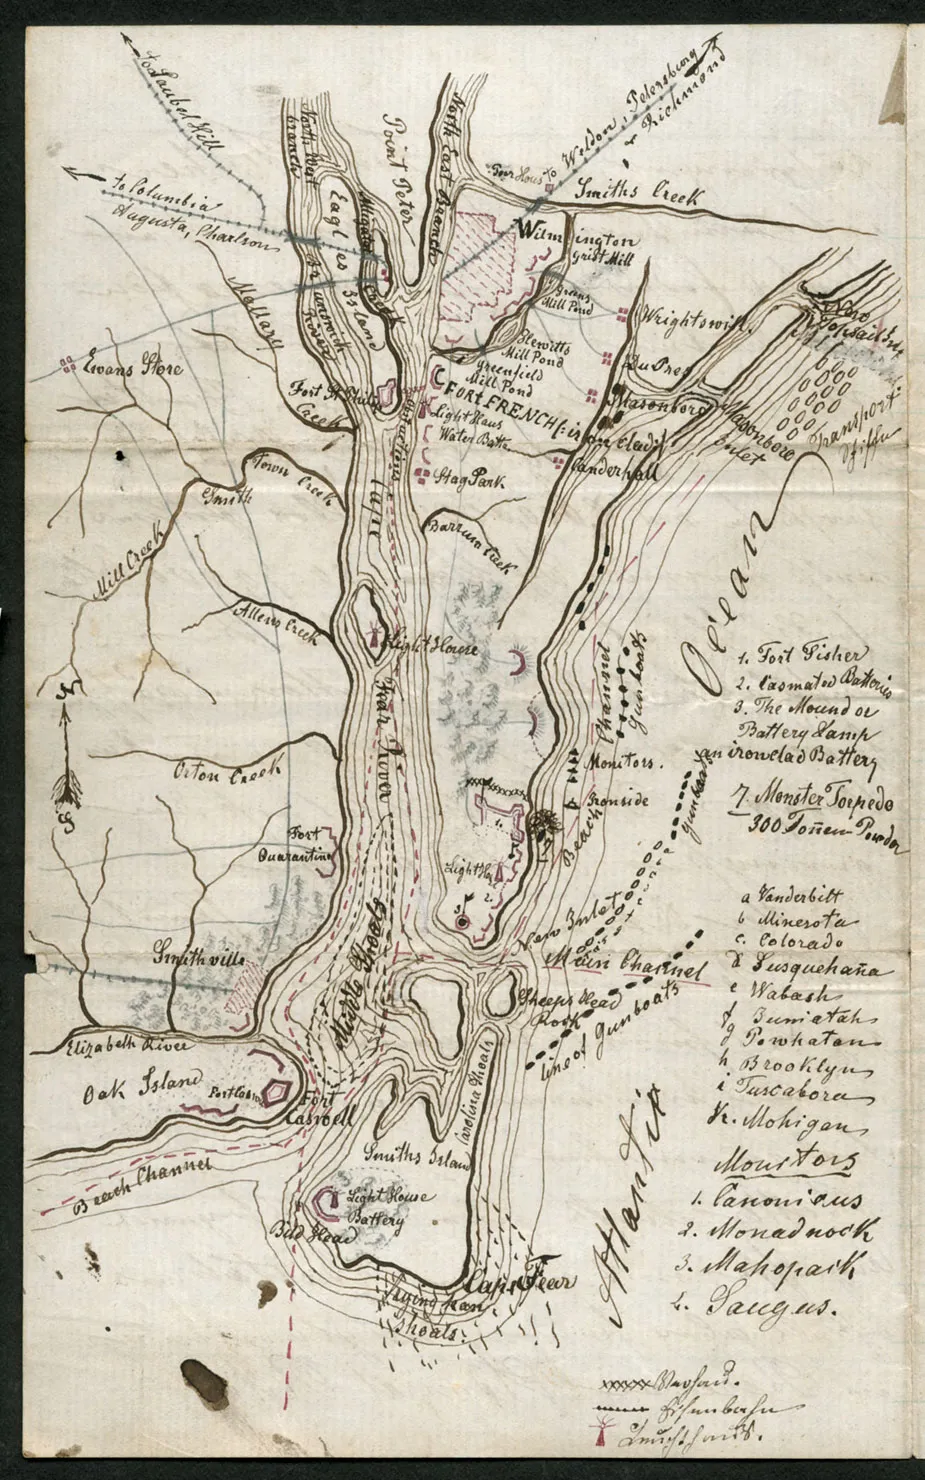 to Laubel Hill
to Weldon, Petersburg
& Richmond
North West
branch
Point Peter
North East branch
to Columbia
Augusta, Charlson
Smiths Creek
Eagles
Island
Aligator
Creek
Brunswick
River
Wilmington
grist Mill
Greens
Mill Pond
Mallary
Creek
Wrightswill
New
Topsail Inl
Ewans Store
Blewitts
Mill Pond
Greenfield
Mill Pond
Du Pres
Fort St Philip
FORT FRENCH (: iron clad :)
Masonboro
Masonboro
Inlet
Transport-
Schiffe
Light Haus
Water Batt.
Obstructions
Town Creek
Smith
Stag Park
Vanderhall
Cape
Mill Creek
Barrum Creek
Allens Creek
Light House
Ocean
Channel
Gunboats
Fear River
N
S
Orton Creek
Monitors.
Ironside
Beach
gunboats
1. Fort Fisher
2. Casmated Batteries
3. The Mound or
Battery Lamp
an ironclad Battery
7. Monster Torpedo
300 Tonnen Powder
Fort
Quarantine
1.
Light Hs
2.
3
New Inlet
Main Channel
Smithville
Middle Shoals
Sheeps Head
Rock
line of gunboats
a Vanderbilt
b Minesota
c. Colorado
d Susquehaña
e Wabash
f Juniatah
g Powhatan
h Brooklyn
i Tuscabora
k. Mohigan
Elizabeth River
Oak Island
Fort
Caswell
Carolina Shoals
Smiths Island
Beach Channel
Light House
Battery
Bald Head
Cape Fear
Frying Pan
Shoals.
Atlantic
Monitors
1. Canonicus
2. Monadnock
3. Mahopack
4. Saugus.
Verhau.
Eisenbahn
Leuchthaus.